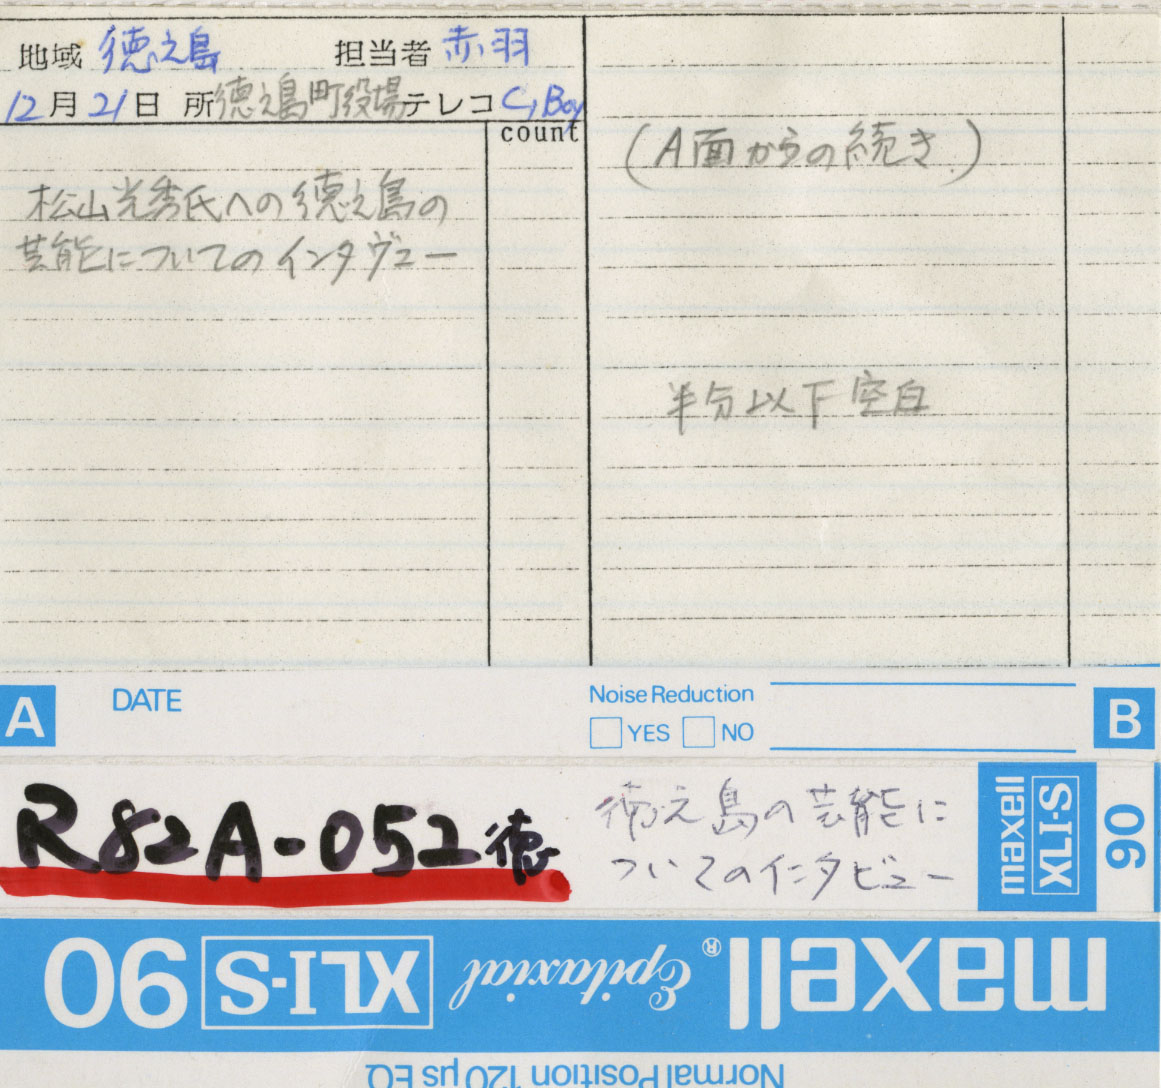 地域 徳之島 担当者 赤羽
12月21日 所 徳之島町役場 テレコ C, Boy
count
松山光秀氏への徳之島の
芸能についてのインタヴュー
(A面からの続き)
半分以下空白
A DATE Noise Reduction B
YES NO
R82A-052徳
徳之島の芸能に
ついてのインタビュー
maxell
XLI-S
90
maxell® Epitaxial XLI-S 90
Normal Position 120 μs EQ